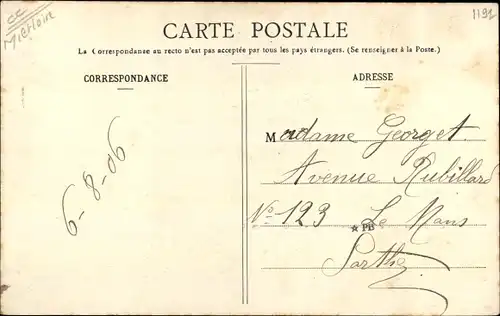 CC
1191
CARTE POSTALE
La Correspondance au recto n'est pas acceptée par tous les pays étrangers. (Se renseigner à la Poste.)
CORRESPONDANCE
ADRESSE
6-8-06
Madame Georget
Avenue Rubillard
N° 123 Le Mans
PB
Sarthe